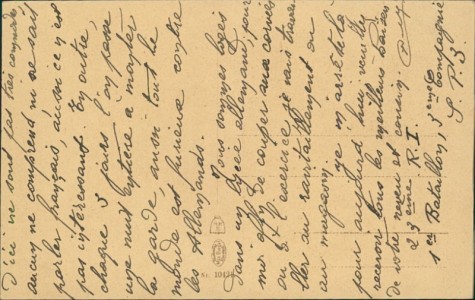 D'ici ne sont pas très commodes,
aucun ne comprend ni ne sait
parler français, aussi ce n'est
pas intéressant. En outre,
chaque 3 jours l'on passe
une nuit entière à monter
la garde, aussi tout le
monde est furieux contre
les Allemands.
Nous sommes logés
dans un lycée allemand, pour
moi afin de couper aux corvées
ou à l'exercice je vais travailler
au ravitaillement ou
au magasin.
Je m'arrête là
pour aujourd'hui, veuillez
recevoir tous les meilleurs baisers
de votre neveu et cousin.
23ème R.I.
1er Bataillon, 3ème Compagnie
S.P. 3
Nr.